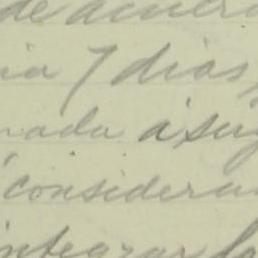 de acuer
ia 7 dias,
nada á su
considera
integrar la